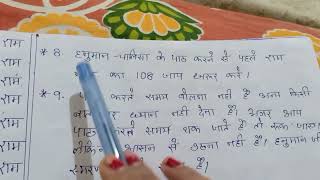 राम
राम
राम
राम
राम
राम
राम
* 8. हनुमान-चालिसा के पाठ करने से पहले राम
का 108 जाप जरूर करें।
* 9. करते समय बोलना नहीं है अन्य किसी
ध्यान नहीं देना है। अगर आप
पाठ करते समय थक जाते है तो रुक
लेकिन आसन से उठना नहीं है। हनुमान जी
है।